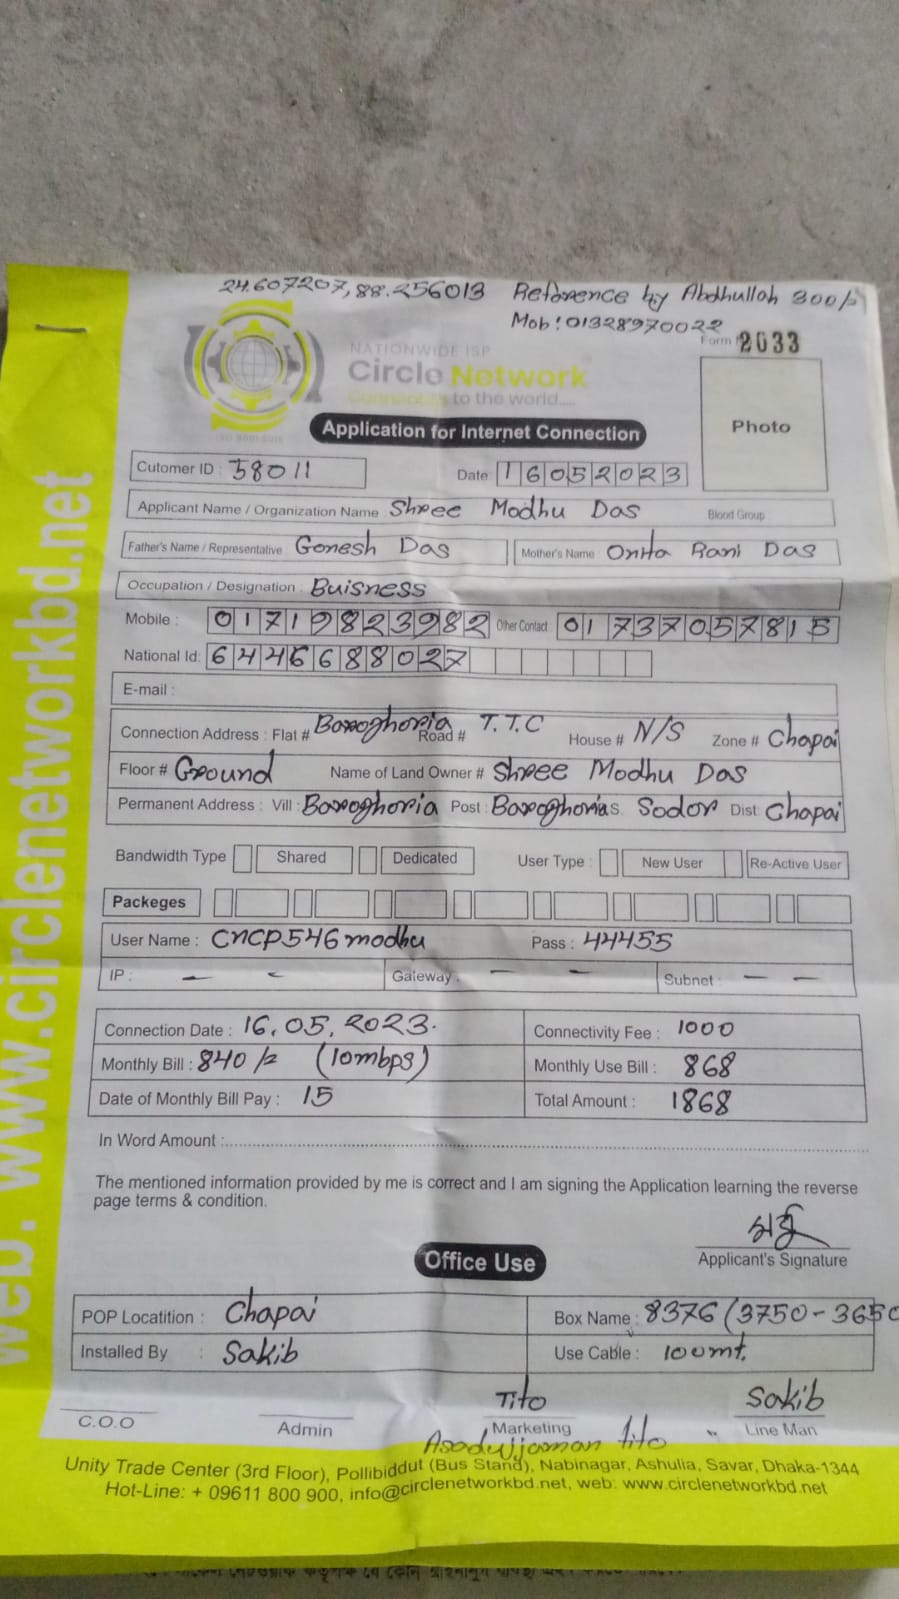 24.607207, 88.256013 Reference by Abdhullah 300/-
Mob: 01328970022
Form 2633
NATIONWIDE ISP
Circle Network
to the world.....
Photo
Application for Internet Connection
Cutomer ID : 58011
Date : 16052023
Applicant Name / Organization Name : Shree Modhu Das Blood Group
Father's Name / Representative Gonesh Das Mother's Name : Onita Rani Das
Occupation / Designation : Buisness
Mobile : 01719823982 Other Contact : 01737057815
National Id: 6446688027
E-mail :
Connection Address : Flat # Baroghoria Road # T.T.C House # N/S Zone # Chapai
Floor # Ground Name of Land Owner # Shree Modhu Das
Permanent Address : Vill : Baroghoria Post : Baroghoria S. Sodor Dist: Chapai
Bandwidth Type Shared Dedicated User Type : New User Re-Active User
Packeges
User Name : CNCP546modhu Pass : 44455
IP : – – Gateway : – – Subnet : – –
Connection Date : 16.05.2023. Connectivity Fee : 1000
Monthly Bill : 840/= (10mbps) Monthly Use Bill : 868
Date of Monthly Bill Pay : 15 Total Amount : 1868
In Word Amount :
The mentioned information provided by me is correct and I am signing the Application learning the reverse
page terms & condition.
মধু
Applicant's Signature
Office Use
POP Locatition : Chapai Box Name : 8376 (3750-3650
Installed By : Sakib Use Cable : 100mt.
Tito Sakib
C.O.O Admin Marketing Line Man
Asadujjaman tito
Unity Trade Center (3rd Floor), Pollibiddut (Bus Stand), Nabinagar, Ashulia, Savar, Dhaka-1344
Hot-Line: + 09611 800 900, info@circlenetworkbd.net, web: www.circlenetworkbd.net
web: www.circlenetworkbd.net